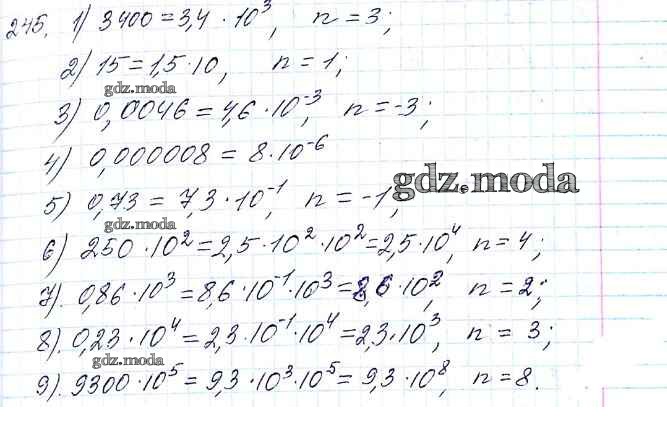 245. 1) 3400 = 3,4 · 10³, n = 3;
2) 15 = 1,5 · 10, n = 1;
gdz.moda
3) 0,0046 = 4,6 · 10⁻³, n = -3;
4) 0,000008 = 8 · 10⁻⁶
gdz.moda
5) 0,73 = 7,3 · 10⁻¹, n = -1,
gdz.moda
6) 250 · 10² = 2,5 · 10² · 10² = 2,5 · 10⁴, n = 4;
7). 0,86 · 10³ = 8,6 · 10⁻¹ · 10³ = 8,6 · 10², n = 2;
8). 0,23 · 10⁴ = 2,3 · 10⁻¹ · 10⁴ = 2,3 · 10³, n = 3;
gdz.moda
9). 9300 · 10⁵ = 9,3 · 10³ · 10⁵ = 9,3 · 10⁸, n = 8.